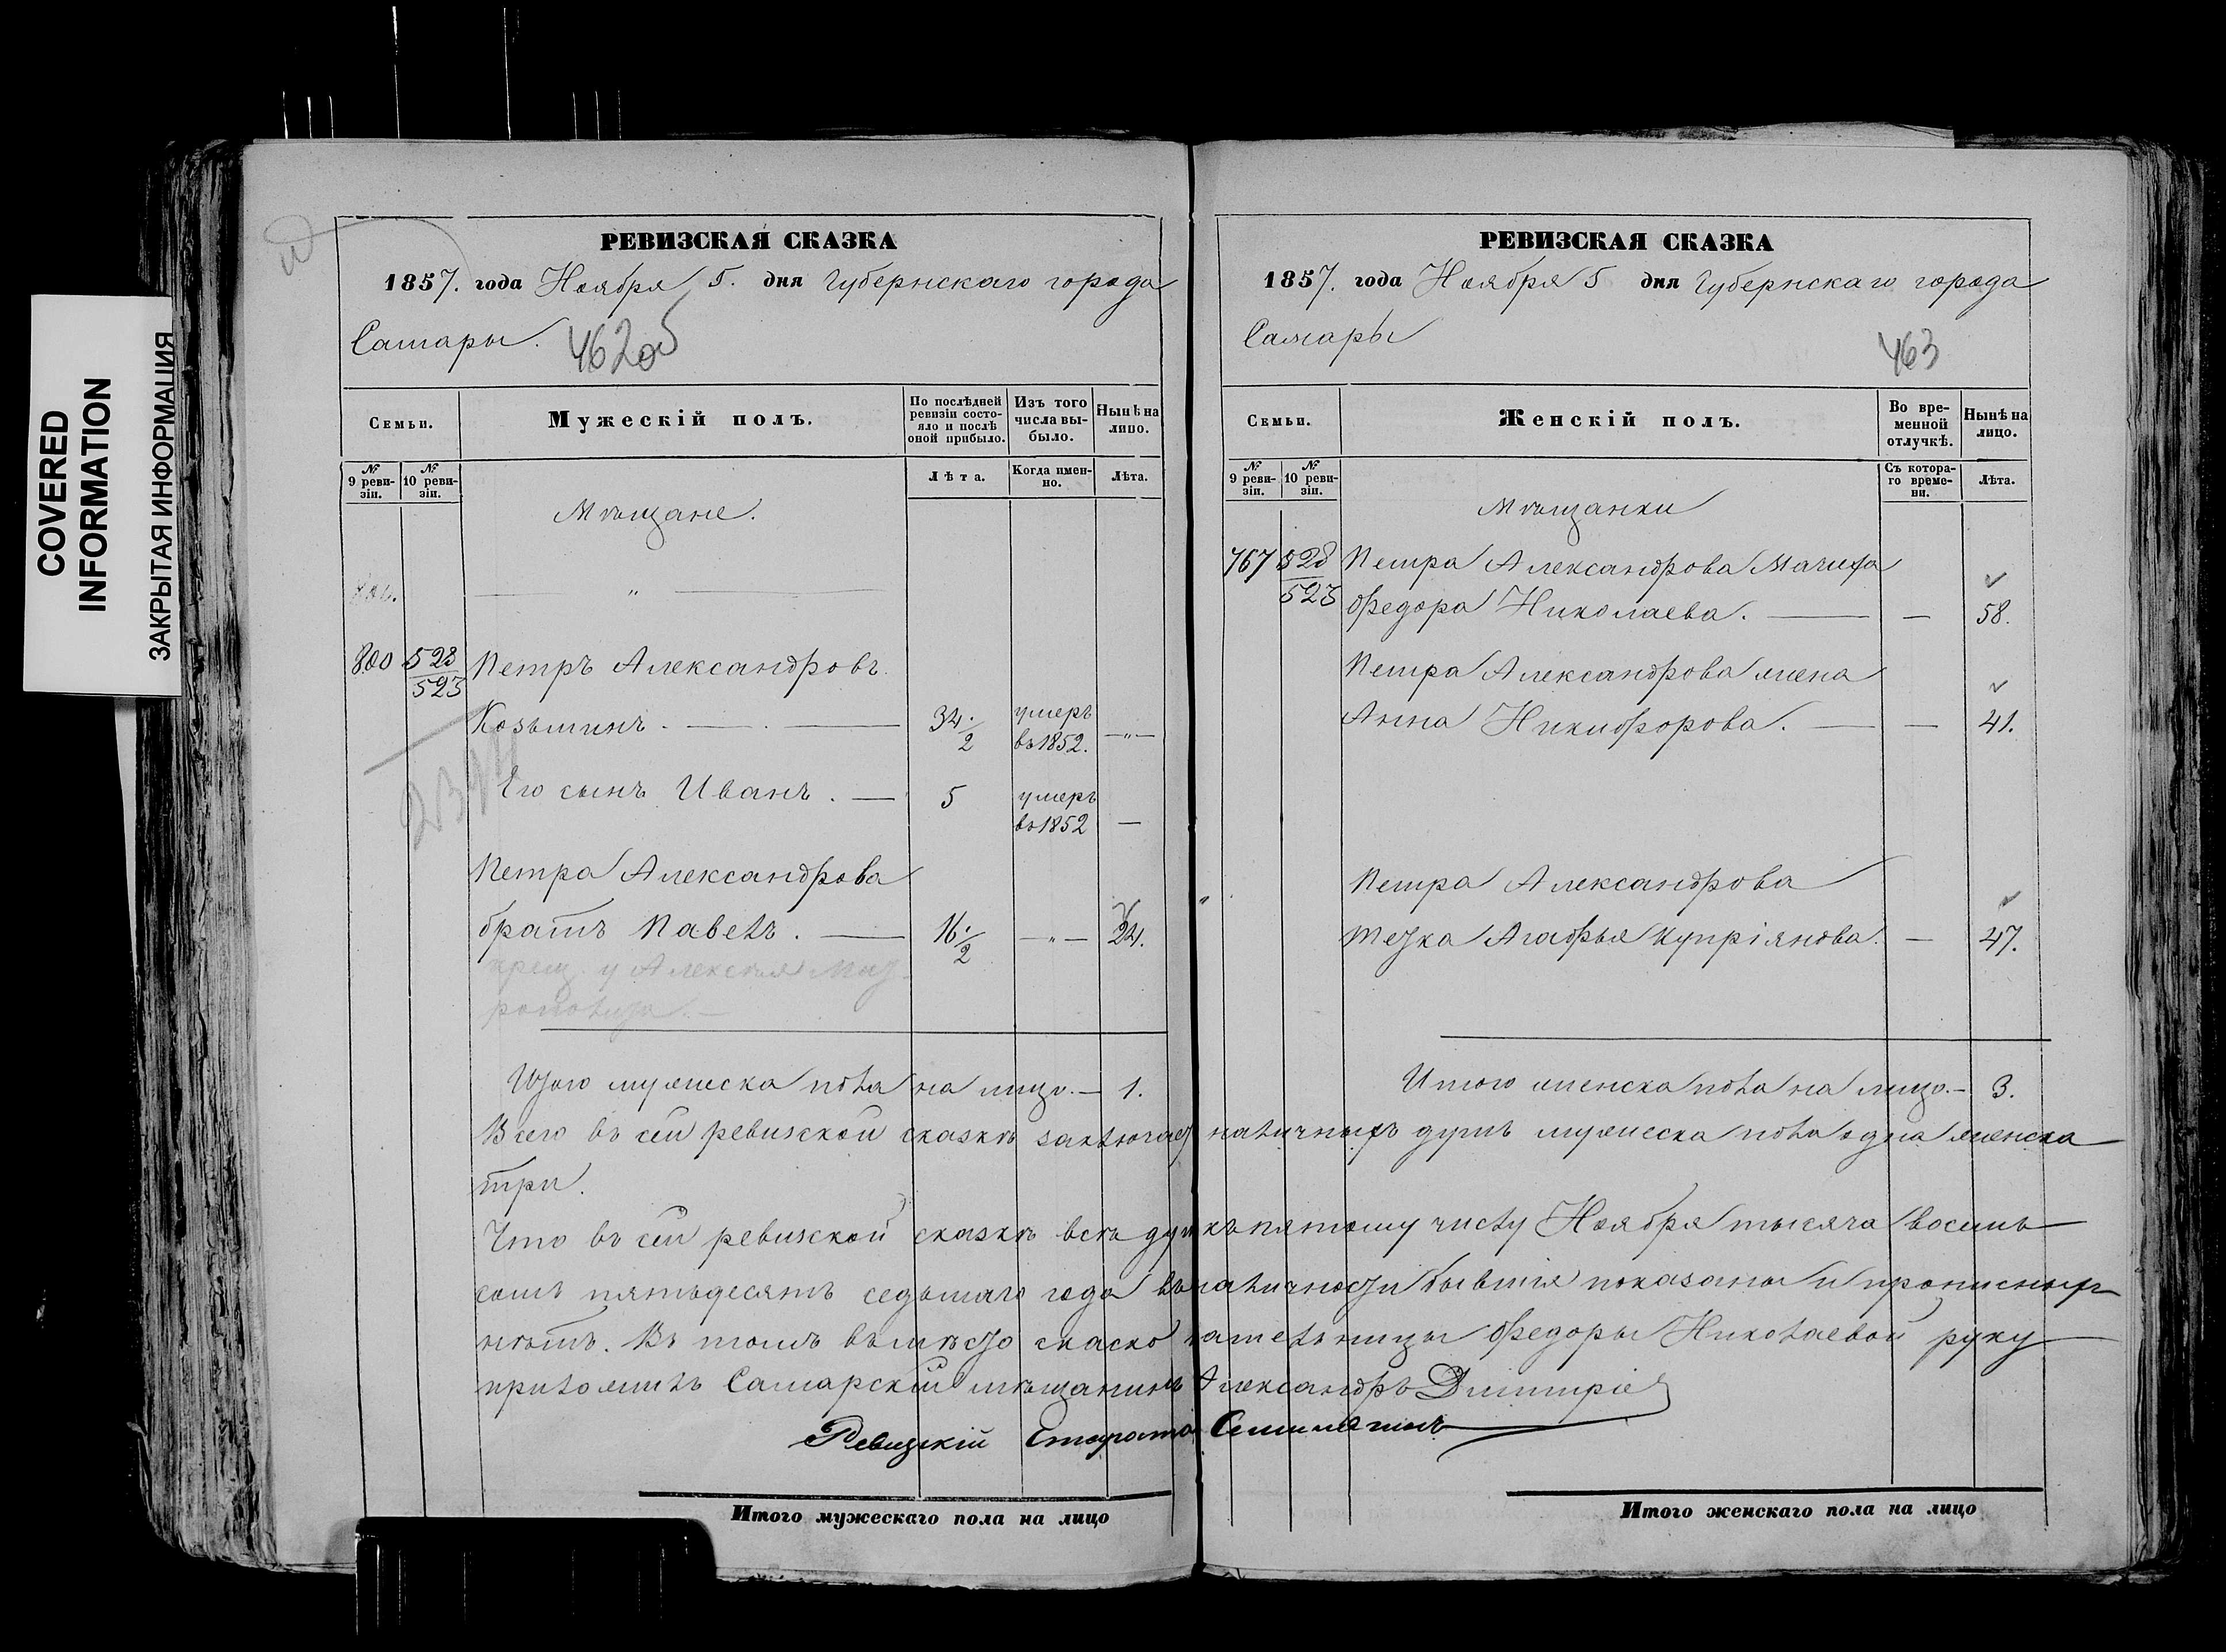 COVERED
INFORMATION
ЗАКРЫТАЯ ИНФОРМАЦИЯ
РЕВИЗСКАЯ СКАЗКА
1857. года Ноября 5. дня Губернскаго города
Самары. 462об
Семьи.
Мужескій полъ.
По послѣдней ревизіи состояло и послѣ оной прибыло.
Изъ того числа выбыло.
Нынѣ на лицо.
№ 9 ревизіи.
№ 10 ревизіи.
Лѣта.
Когда именно.
Лѣта.
Мѣщане.
800 528/523 Петръ Александровъ
Козьминъ. — 34 1/2 умеръ въ 1852. — " —
Его сынъ Иванъ. — 5 умеръ въ 1852 —
Петра Александрова
братъ Павелъ. — 16 1/2 — " — 24.
Итого мужеска пола на лицо. — 1.
РЕВИЗСКАЯ СКАЗКА
1857. года Ноября 5 дня Губернскаго города
Самары 463
Семьи.
Женскій полъ.
Во временной отлучкѣ.
Нынѣ на лицо.
№ 9 ревизіи.
№ 10 ревизіи.
Съ котораго времени.
Лѣта.
Мѣщанки
767 528/523 Петра Александрова Мачиха
Федора Николаева. — — 58.
Петра Александрова жена
Анна Никифорова. — — 41.
Петра Александрова
тетка Агафья Купріянова. — 47.
Итого женска пола на лицо. — 3.
Всего въ сей ревизской сказкѣ заключает наличныхъ душъ мужеска пола одна женска
три.
Что въ сей ревизской сказкѣ всѣ души къ пятому числу Ноября тысяча восемь
сотъ пятьдесятъ седьмаго года въ наличности бывшія показаны и прописныхъ
нѣтъ. Въ томъ вмѣсто сказкоподательницы Федоры Николаевой руку
приложилъ Самарскій мѣщанинъ Александръ Димитріе
Ревизскій Староста
Итого мужескаго пола на лицо
Итого женскаго пола на лицо